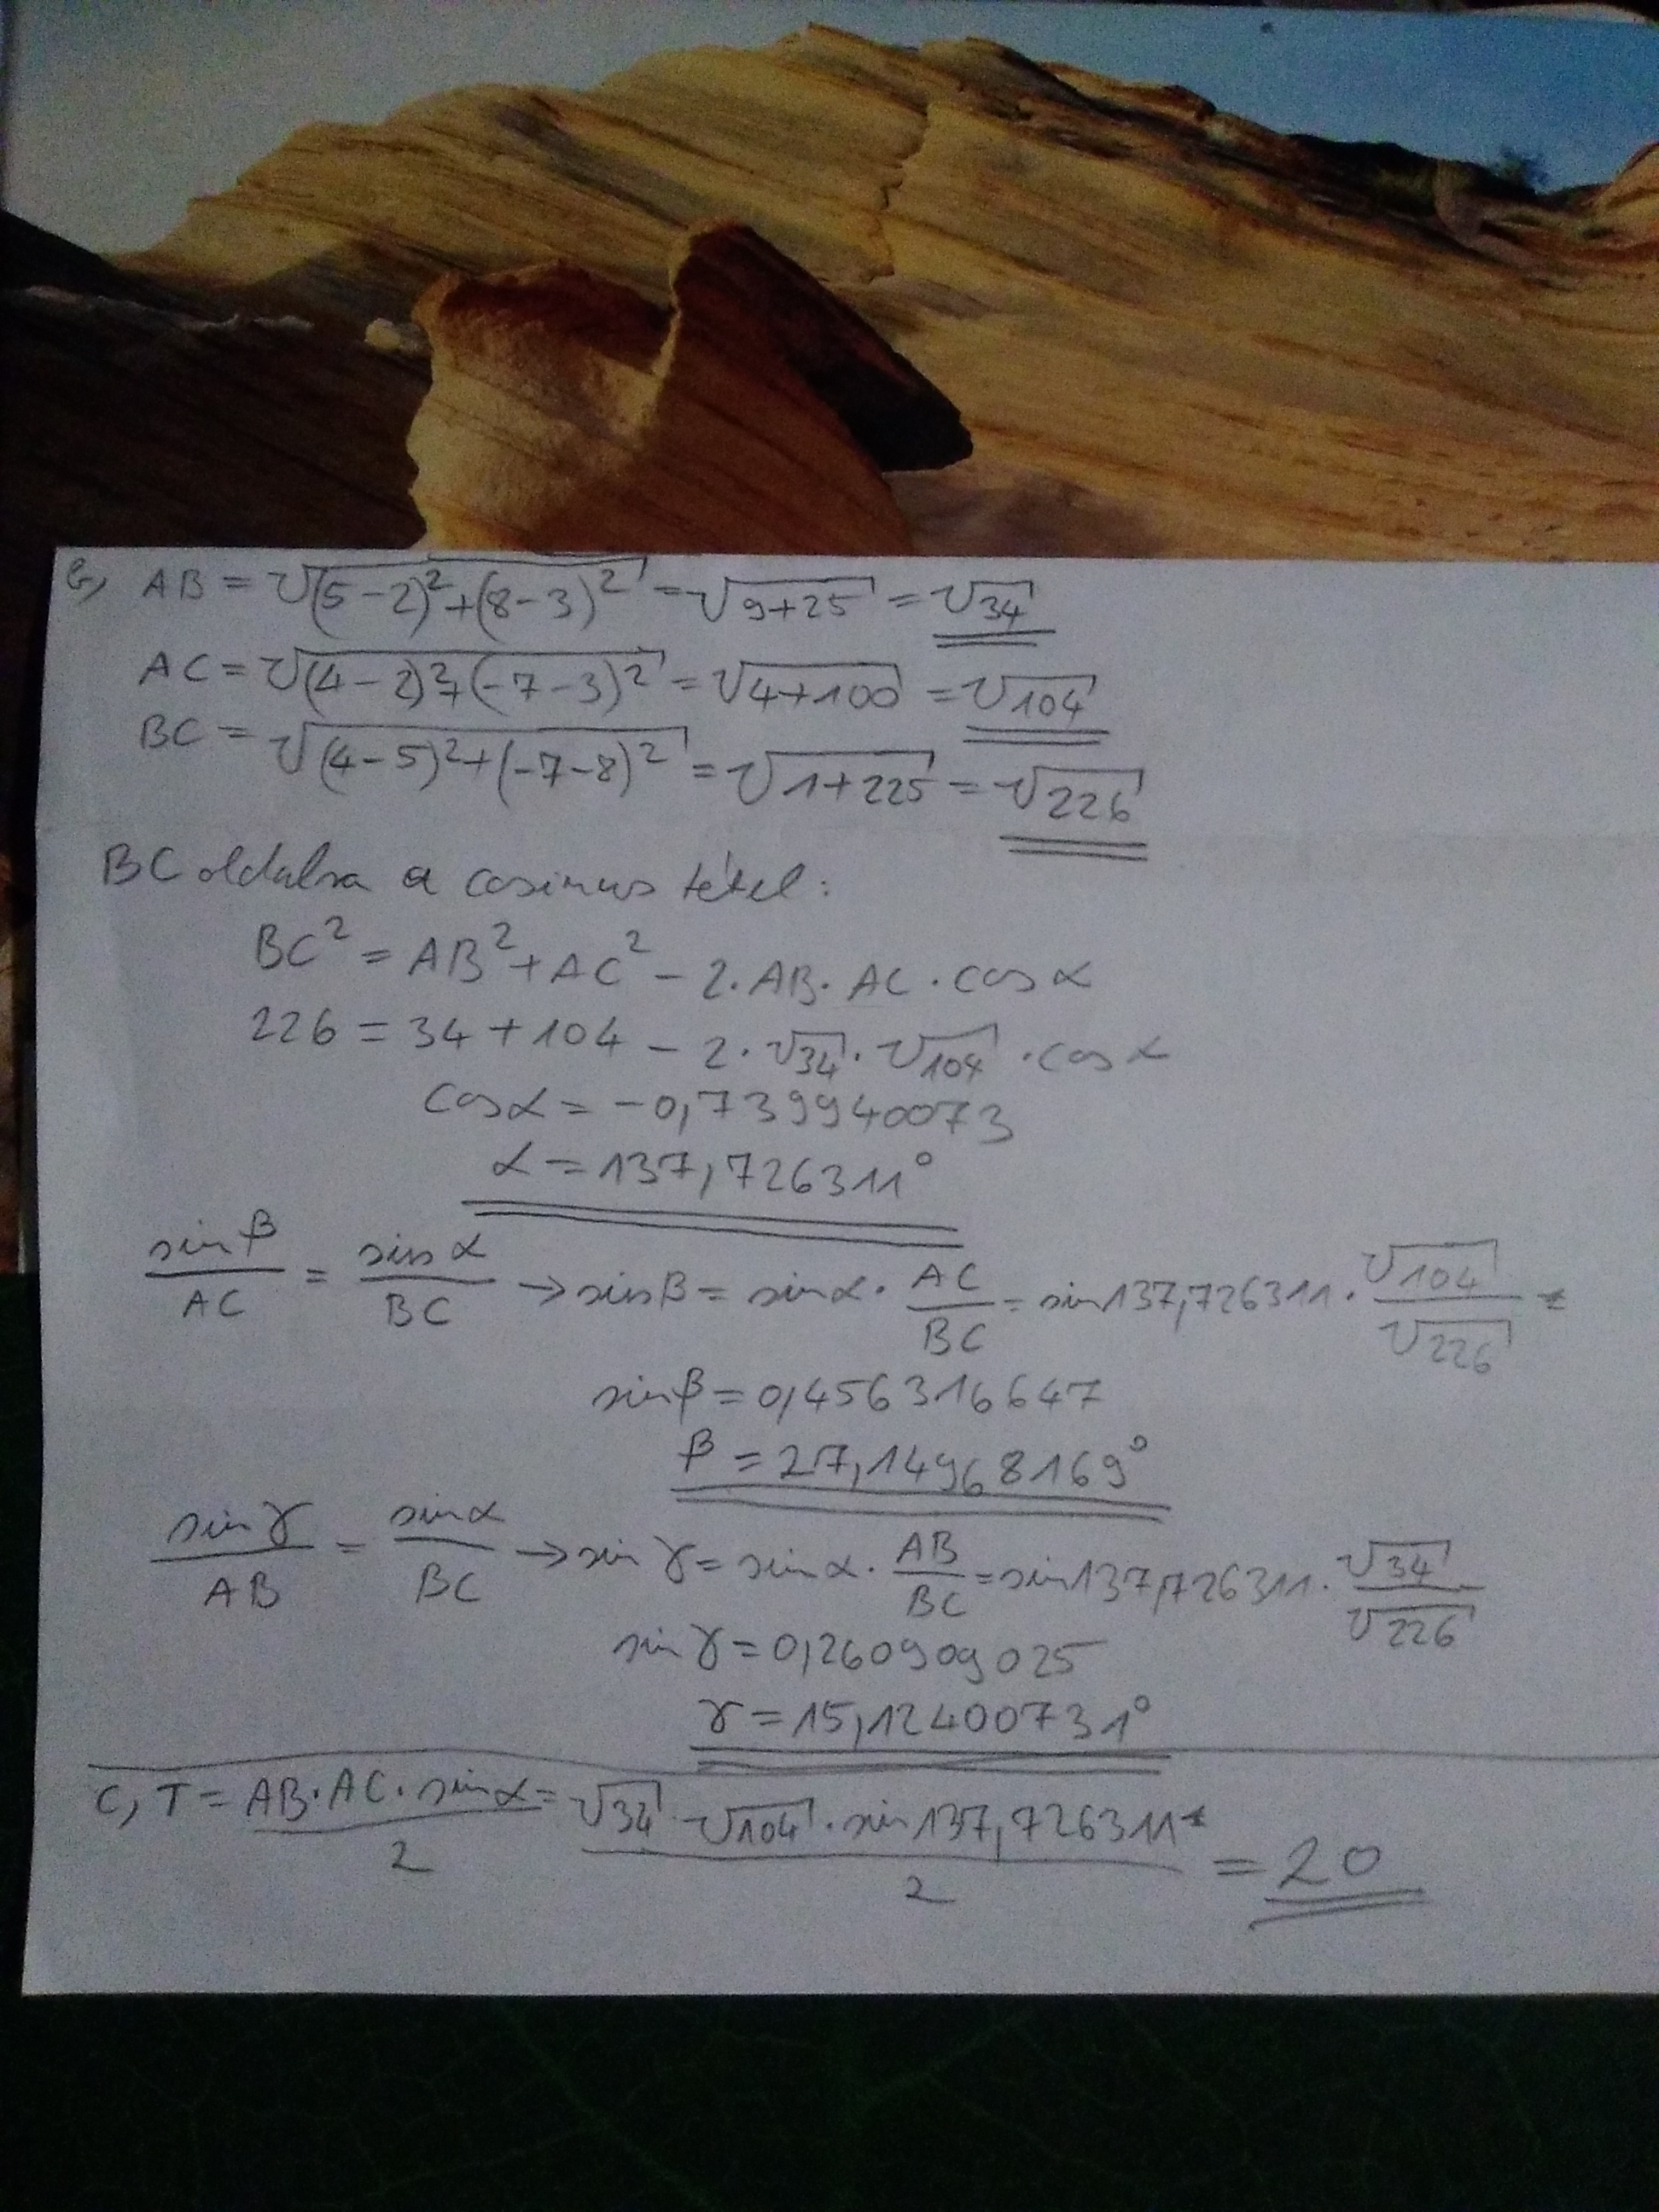 b, AB = √(5-2)²+(8-3)² = √9+25 = √34
AC = √(4-2)²+(-7-3)² = √4+100 = √104
BC = √(4-5)²+(-7-8)² = √1+225 = √226
BC oldalra a cosinus tétel:
BC² = AB²+AC² - 2·AB·AC·cos α
226 = 34 + 104 - 2·√34·√104·cos α
cos α = -0,739940073
α = 137,726311°
sin β / AC = sin α / BC → sin β = sin α · AC / BC = sin 137,726311 · √104 / √226 =
sin β = 0,456316647
β = 27,14968169°
sin γ / AB = sin α / BC → sin γ = sin α · AB / BC = sin 137,726311 · √34 / √226
sin γ = 0,260909025
γ = 15,12400731°
C, T = AB·AC·sin α / 2 = √34·√104·sin 137,726311 / 2 = 20